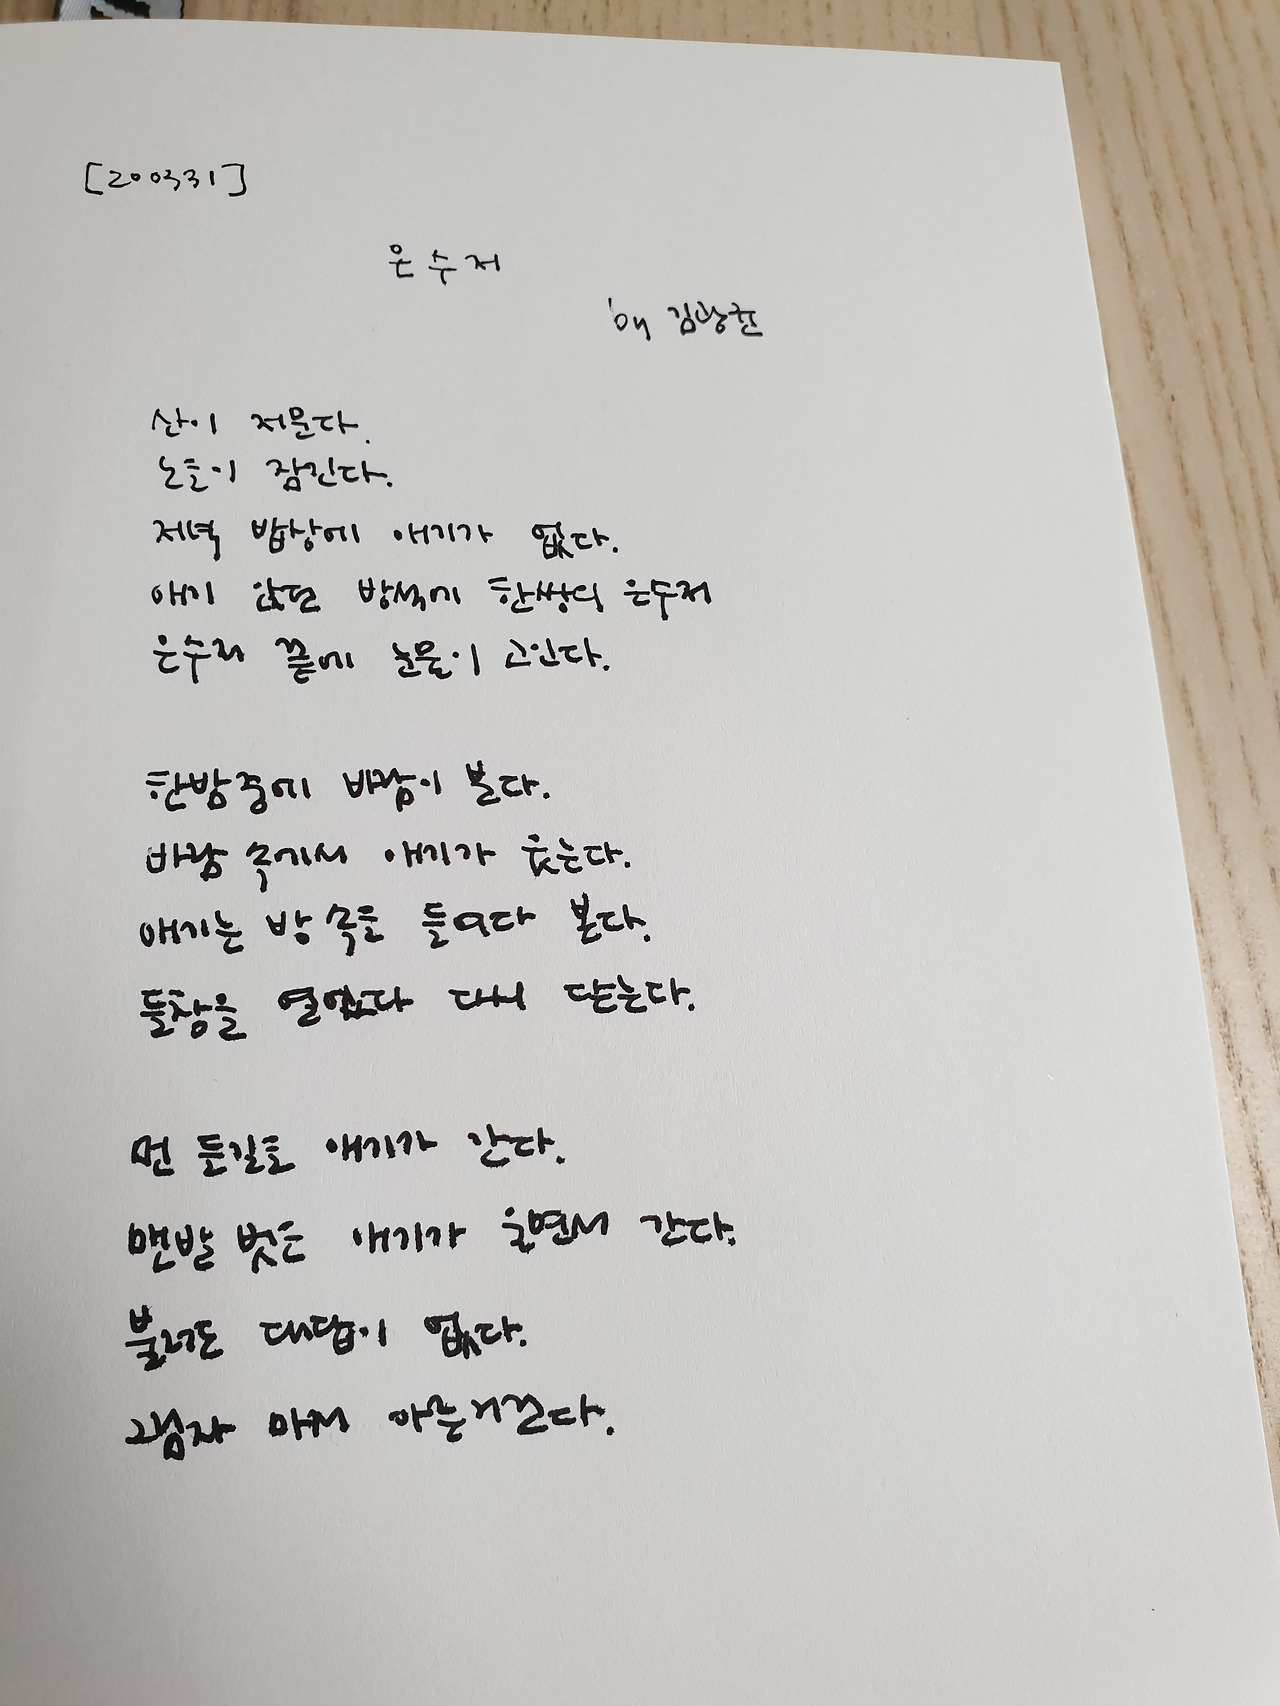 [200331]
은수저
by 김광균
산이 저문다.
노을이 잠긴다.
저녁 밥상에 애기가 없다.
애기 앉던 방석에 한쌍의 은수저
은수저 끝에 눈물이 고인다.
한밤중에 바람이 분다.
바람 속에서 애기가 웃는다.
애기는 방 속을 들여다 본다.
들창을 열었다 다시 닫는다.
먼 들길로 애기가 간다.
맨발 벗은 애기가 울면서 간다.
불러도 대답이 없다.
그림자 마저 아른거린다.